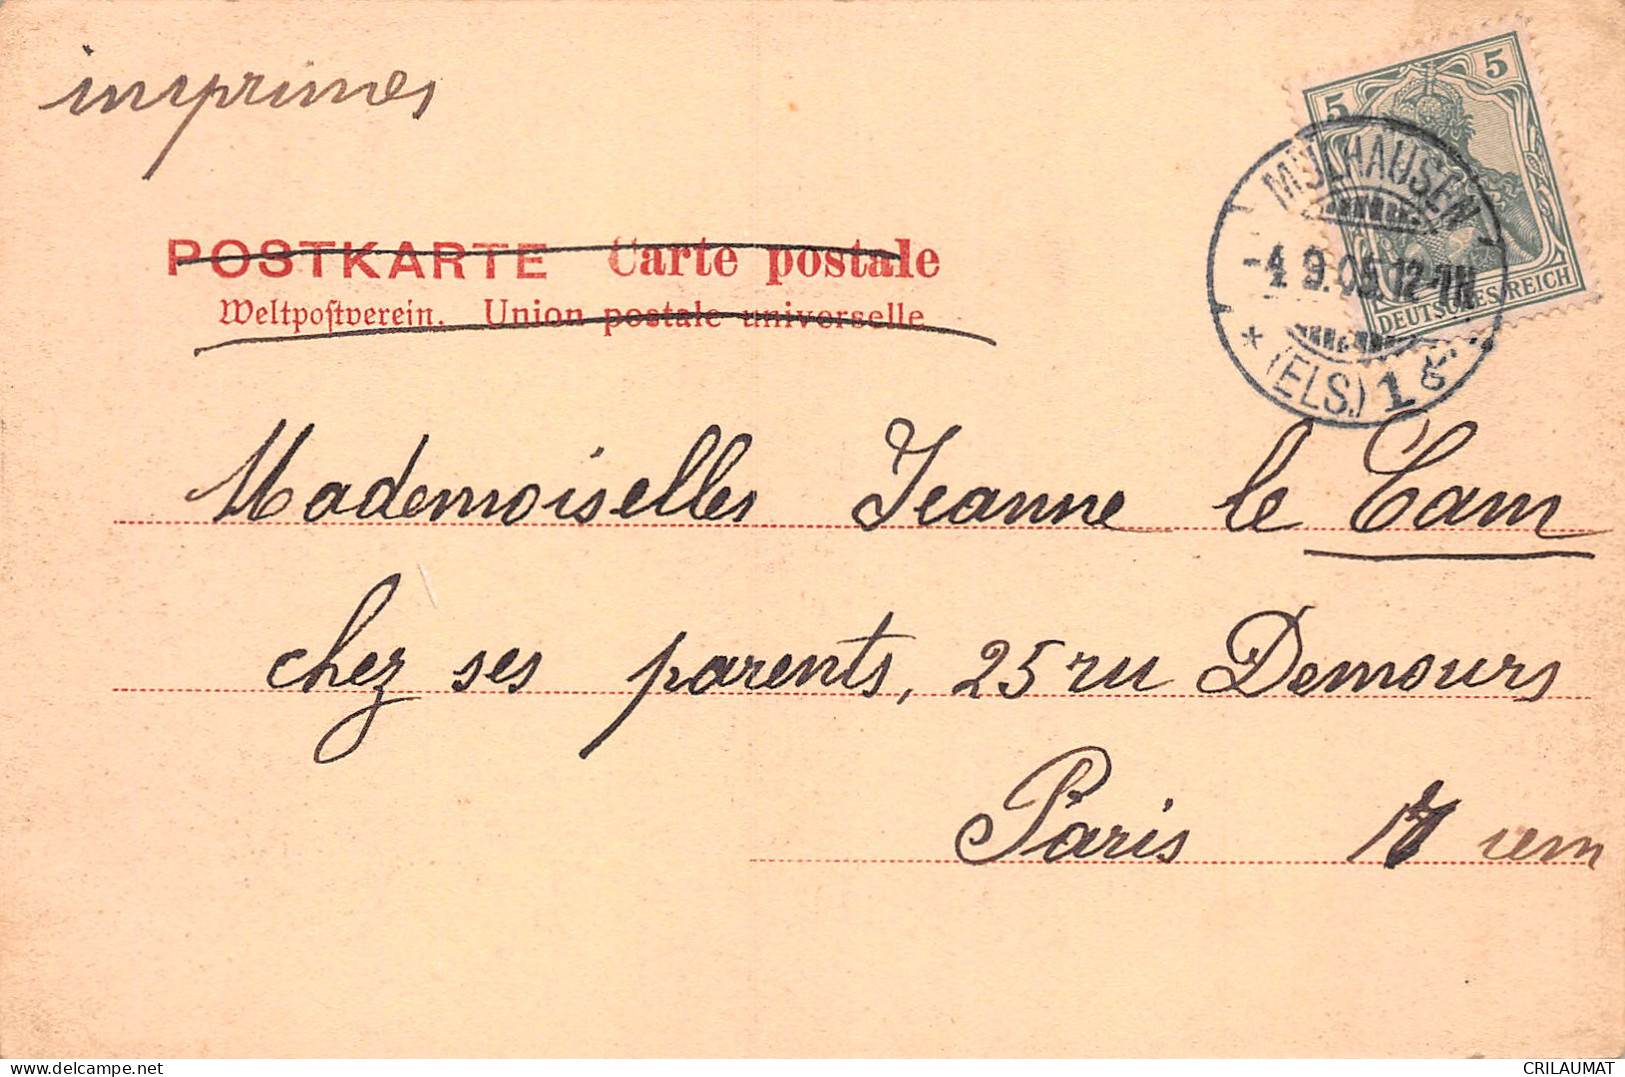 imprimes
5 5
DEUTSCHES REICH
MÜLHAUSEN
-4.9.05.12-1N
* (ELS.) 1 g
POSTKARTE Carte postale
Weltpostverein. Union postale universelle
Mademoiselles Jeanne le Cam
chez ses parents, 25 ru Demours
Paris 17 iem
CRILAUMAT